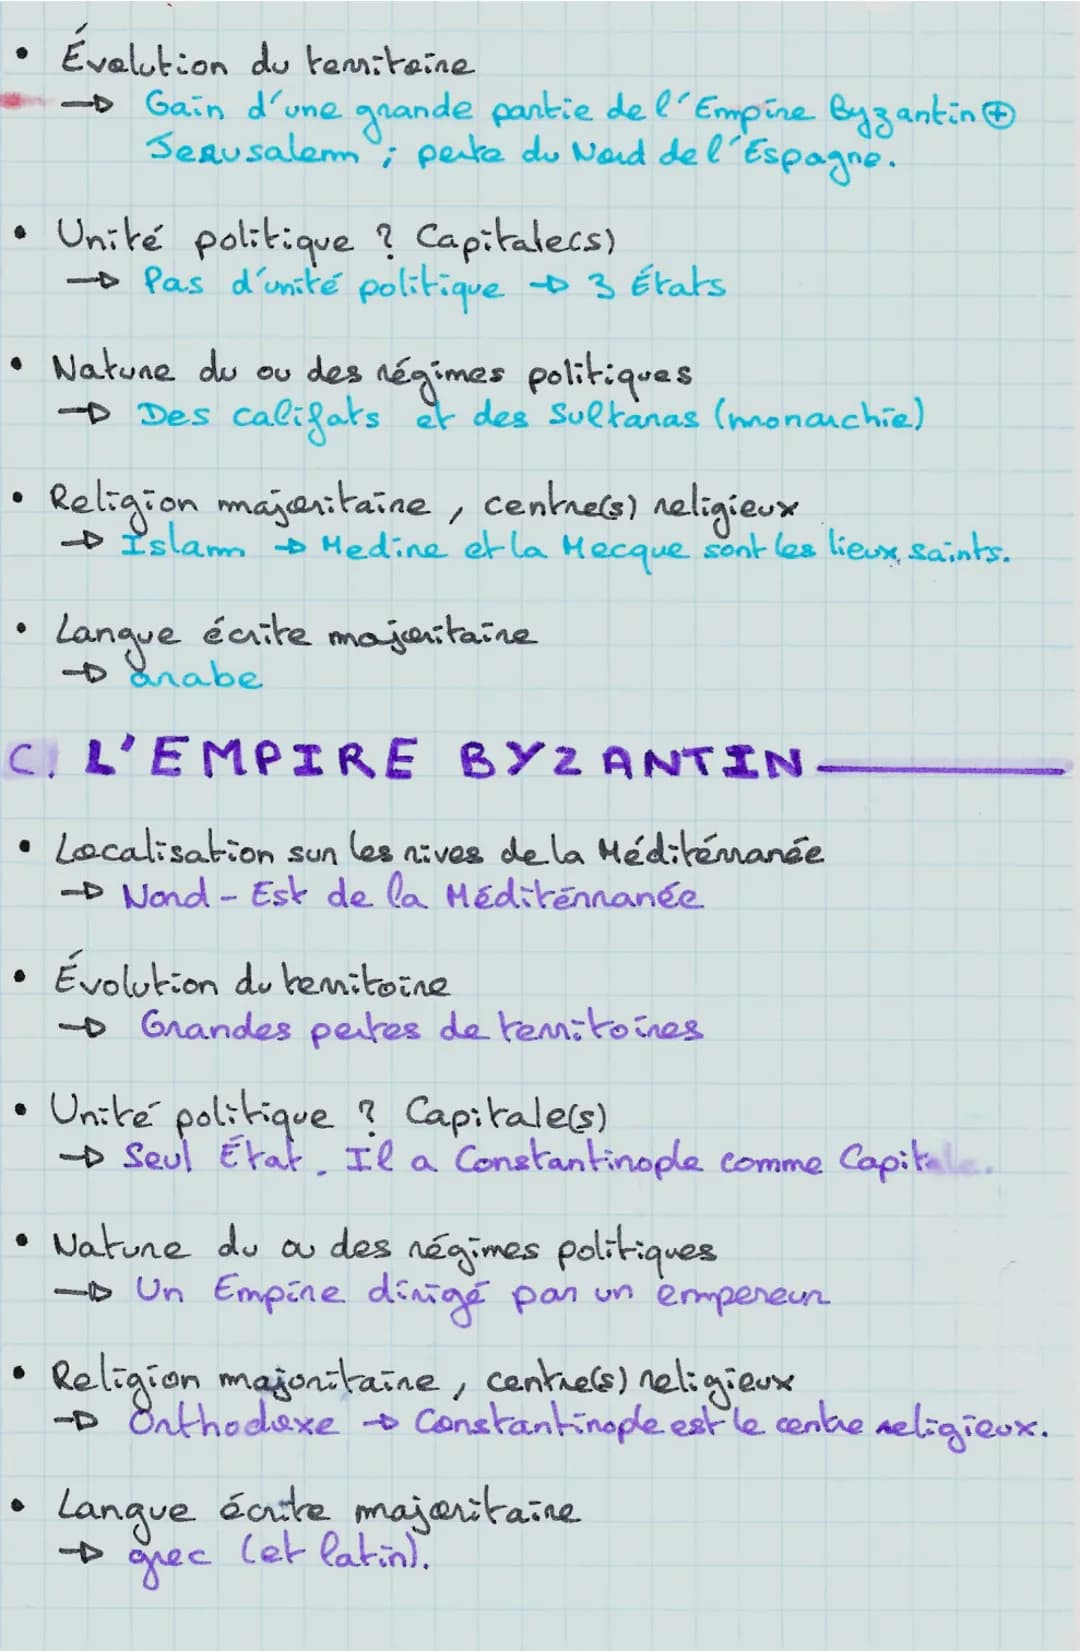 • Évolution du territoire
→ Gain d'une grande partie de l'Empire Byzantin ⊕
Jerusalem ; perte du Nord de l'Espagne.
• Unité politique ? Capitale(s)
→ Pas d'unité politique → 3 États
• Nature du ou des régimes politiques
→ Des califats et des Sultanas (monarchie)
• Religion majoritaire, centre(s) religieux
→ Islam → Medine et la Mecque sont les lieux saints.
• Langue écrite majoritaire
→ arabe
C. L'EMPIRE BYZANTIN
• Localisation sur les rives de la Méditérranée
→ Nord-Est de la Méditérranée
• Évolution du territoire
→ Grandes pertes de territoires
• Unité politique ? Capitale(s)
→ Seul État. Il a Constantinople comme Capitale.
• Nature du ou des régimes politiques
→ Un Empire dirigé par un empereur
• Religion majoritaire, centre(s) religieux
→ Orthodoxe → Constantinople est le centre religieux.
• Langue écrite majoritaire
→ grec (et latin).